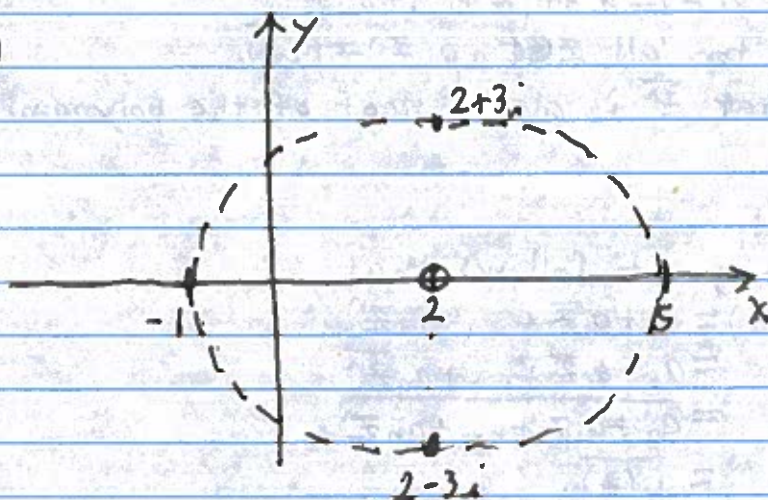 y
2+3i
-1 2 5 x
2-3i